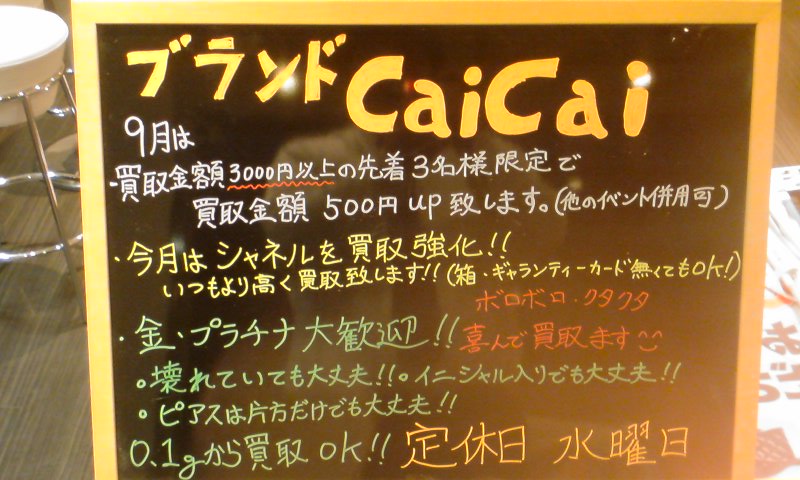 ブランドCaiCai
9月は
・買取金額3000円以上の先着3名様限定で
買取金額 500円up致します。(他のイベント併用可)
・今月はシャネルを買取強化!!
いつもより高く買取致します!!(箱・ギャランティーカード無くてもOK!)
ボロボロ・クタクタ
・金・プラチナ大歓迎!!喜んで買取ます
。壊れていても大丈夫!!。イニシャル入りでも大丈夫!!
。ピアスは片方だけでも大丈夫!!
0.1gから買取OK!!定休日 水曜日